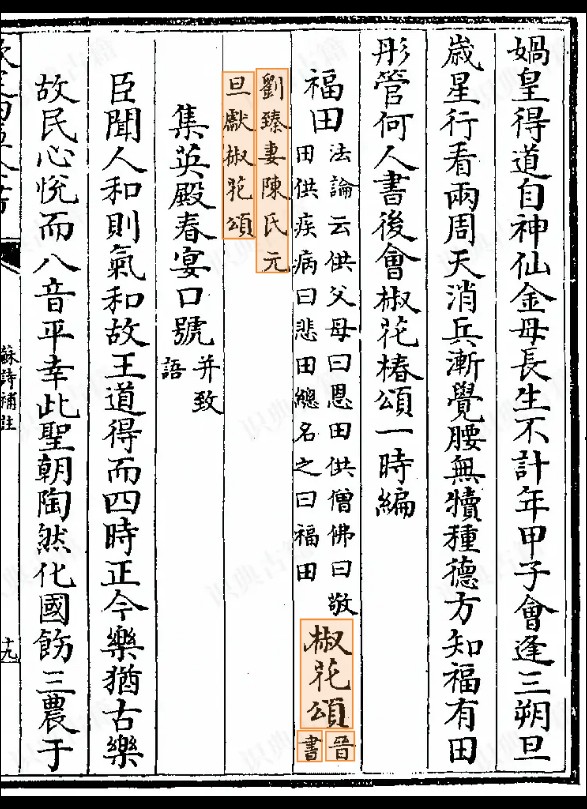 媧皇得道自神仙金母長生不計年甲子會逢三朔旦
歲星行看兩周天消兵漸覺腰無犢種德方知福有田
彤管何人書後會椒花椿頌一時編
福田
法論云供父母曰恩田供僧佛曰敬
田供疾病曰悲田總名之曰福田
椒花頌
晉
書
劉臻妻陳氏元
旦獻椒花頌
集英殿春宴口號
并致
語
臣聞人和則氣和故王道得而四時正今樂猶古樂
故民心悅而八音平幸此聖朝陶然化國飭三農于
蘇詩補註
十九